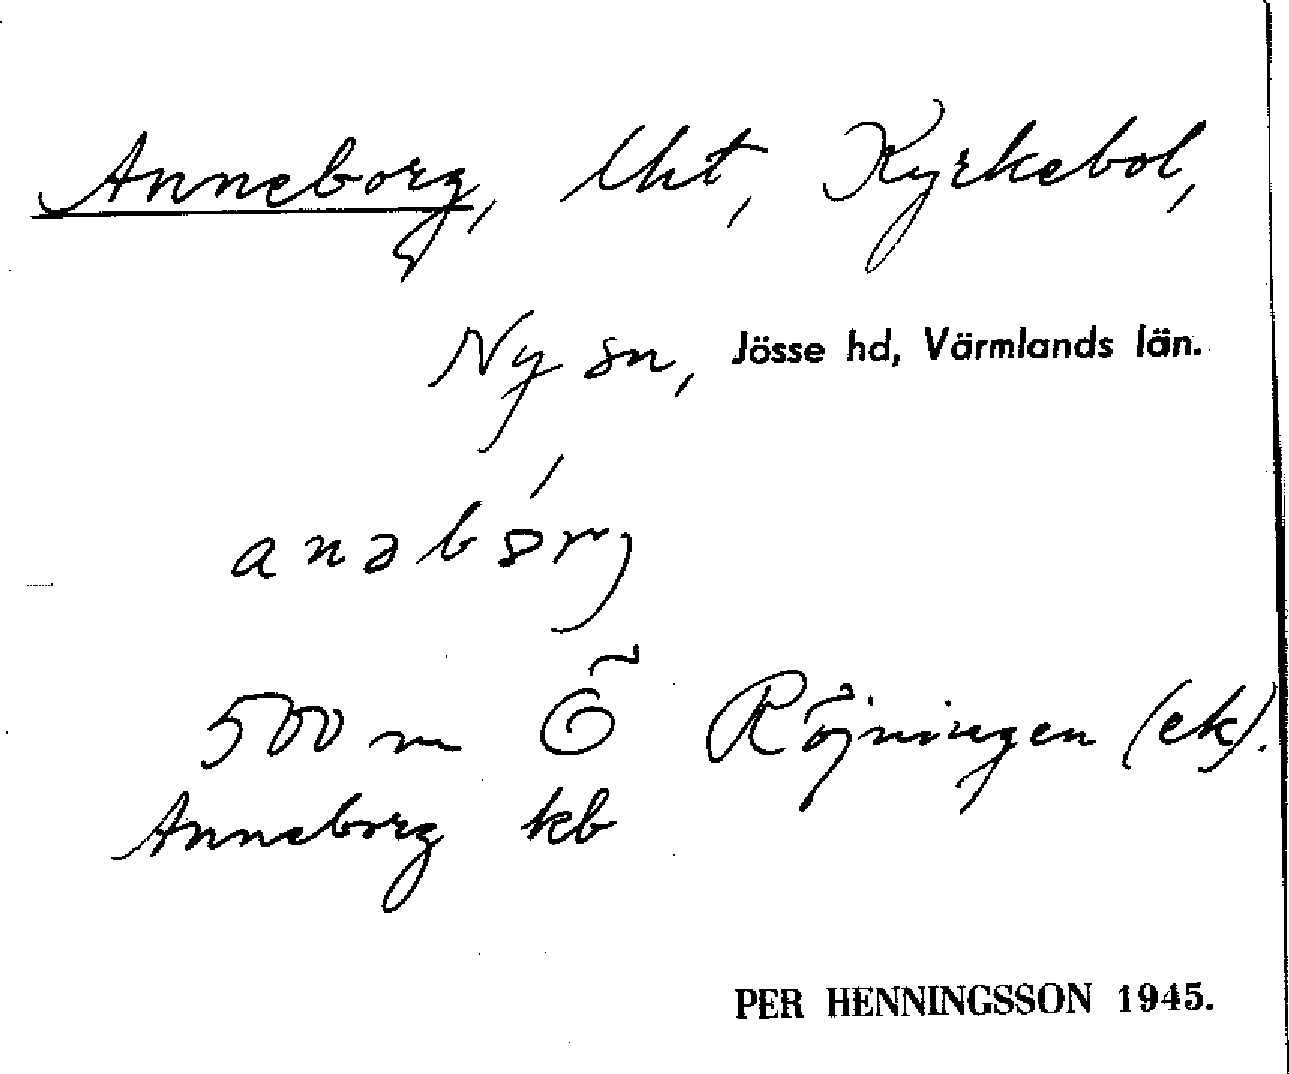 Anneborg, lht, Kyrkebol,
Ny sn, Jösse hd, Värmlands län.
500 m Ö Röjningen (ek).
Anneborg kb
PER HENNINGSSON 1945.